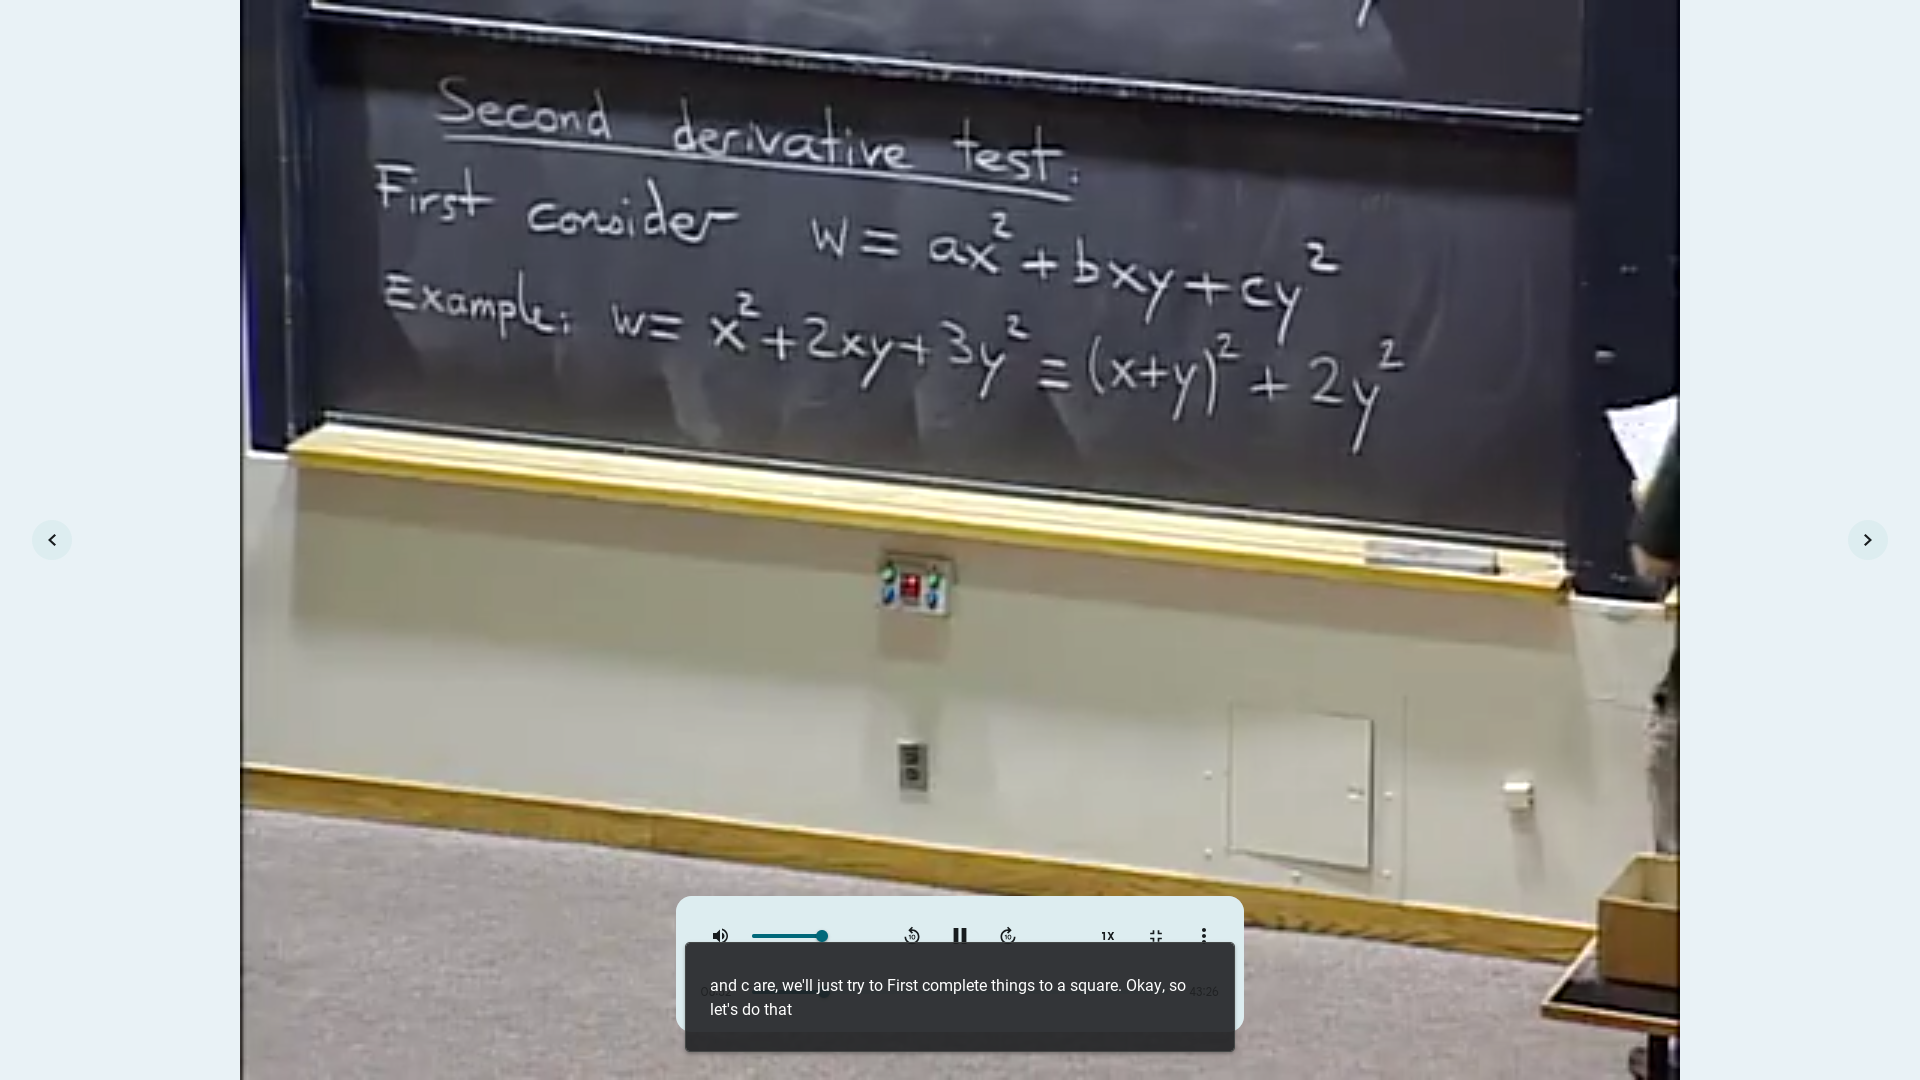 Second derivative test:
First consider w = ax² + bxy + cy²
Example: w = x² + 2xy + 3y² = (x+y)² + 2y²
10
10
1X
43:26
and c are, we'll just try to First complete things to a square. Okay, so
let's do that